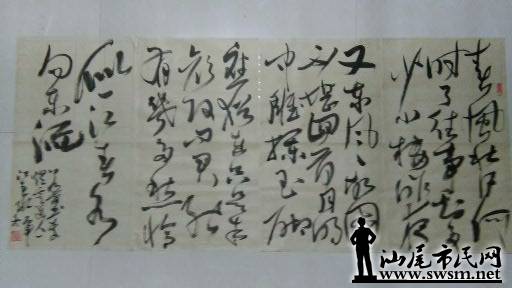 春風秋月何
时了往事知多
少小楼昨夜
又东风故國
不堪回首月明
中雕栏玉砌
應犹在只是朱
颜改问君能
有幾多愁恰
似一江春水
向东流
汕尾市民网
www.swsm.net